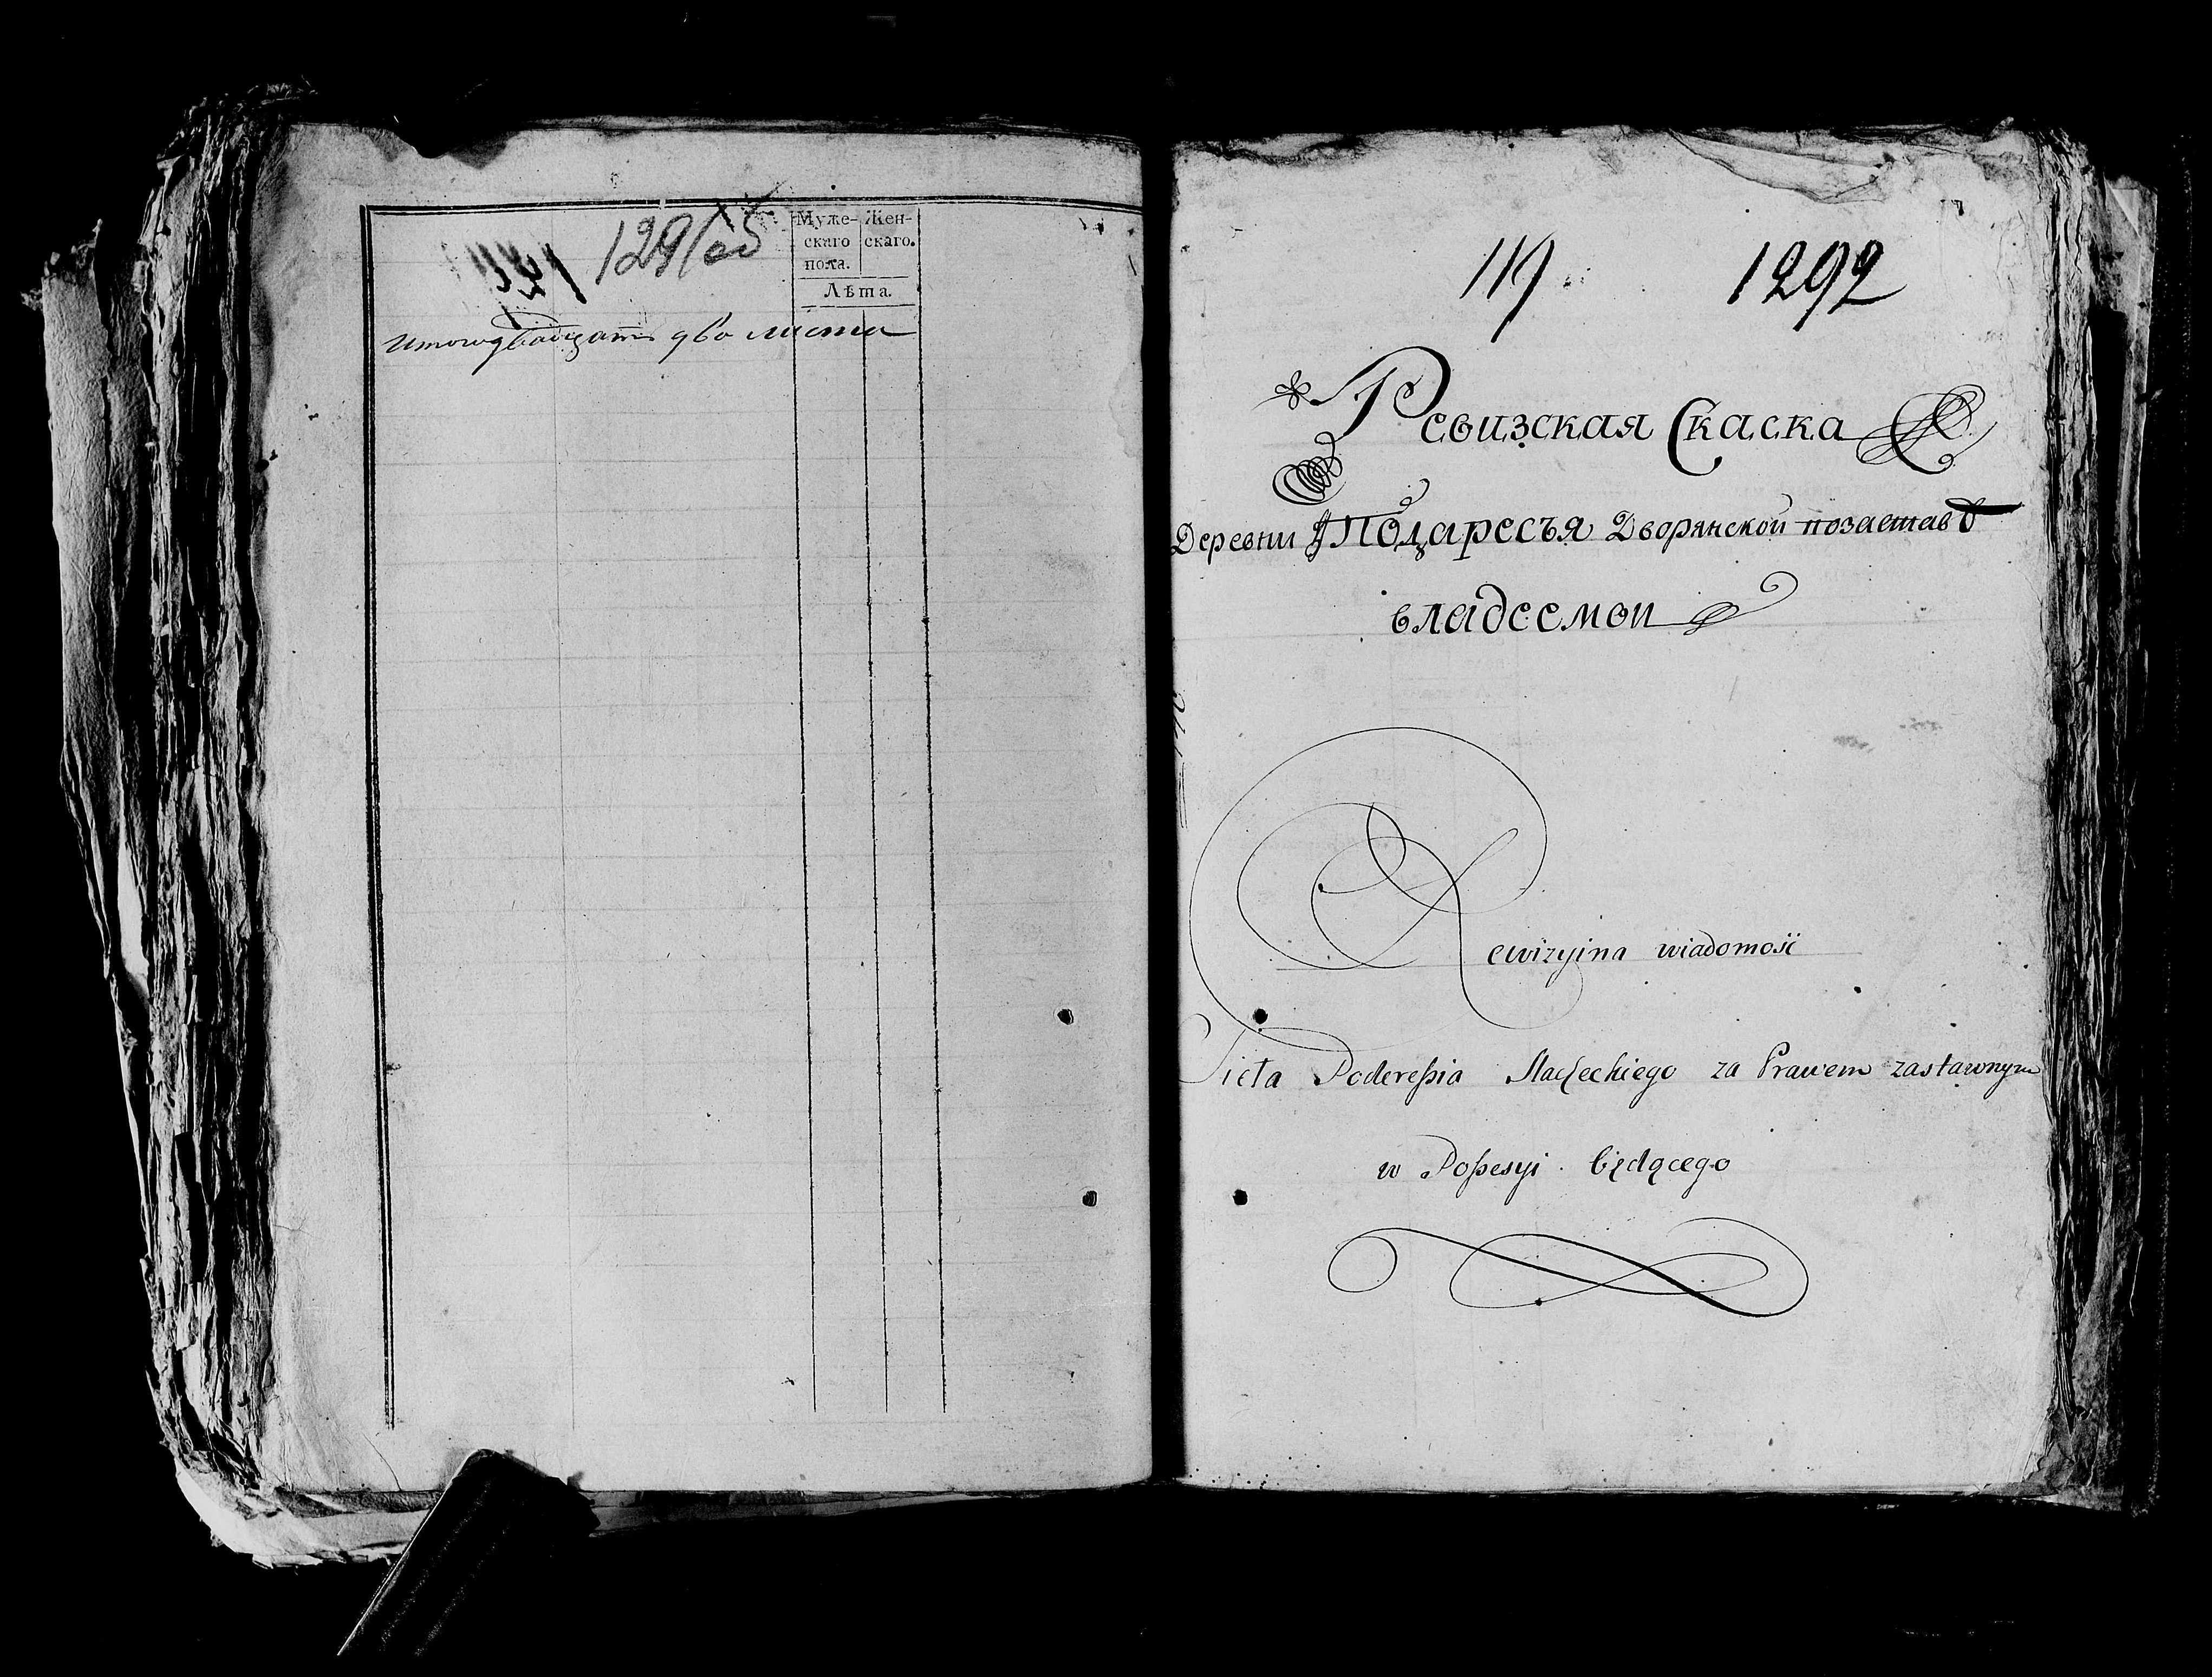 1291об
Муже-
скаго
пола.
Жен-
скаго.
Лѣта.
итого двадцать два листа
119
1292
Ревизская Скаска
Деревни Подаресья Дворянской позастав
владеемои
Rewizyjna wiadomość
Sieła Podereßia Slacheckiego za Prawem zastawnym
w Poßesyi będącego